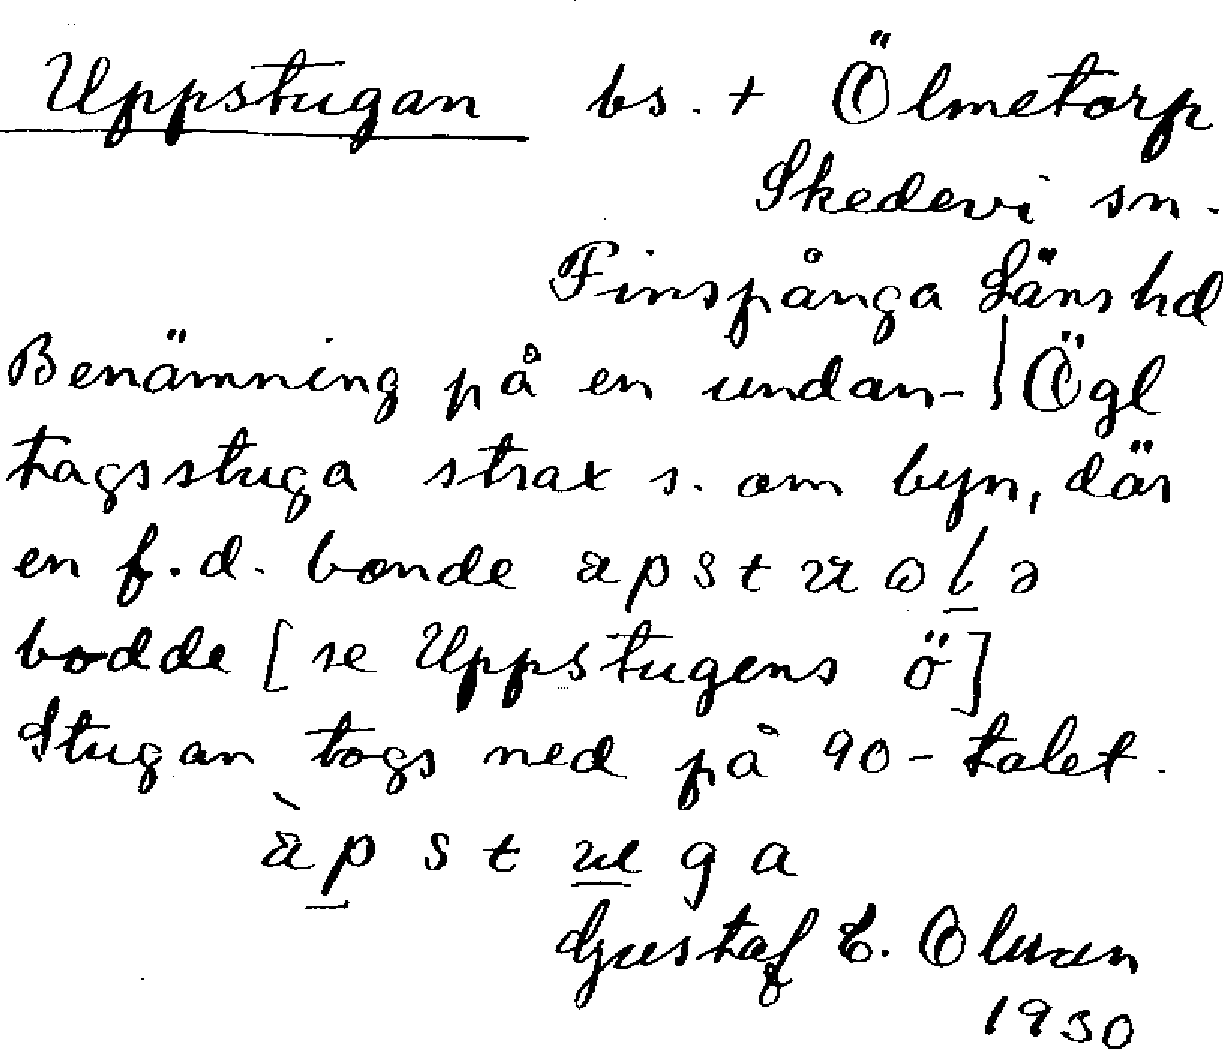 Uppstugan bs. + Ölmetorp
Skedevi sn.
Finspånga Länshd
Benämning på en undan- | Ögl
tagsstuga strax s. om byn, där
en f.d. bonde
bodde [se Uppstugens ö]
Stugan togs ned på 90-talet.
Gustaf E.
1930